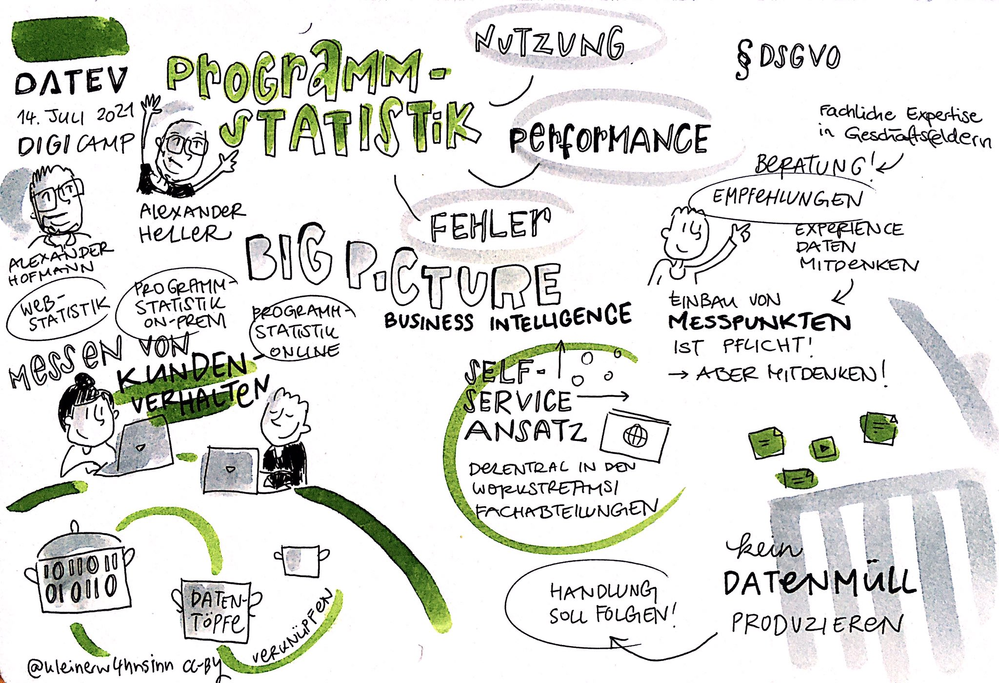 DATEV
14. JULI 2021
DIGICAMP
ALEXANDER
HELLER
ALEXANDER
HOFMANN
PROGRAMM-
STATISTIK
NUTZUNG
PERFORMANCE
FEHLER
§ DSGVO
Fachliche Expertise
in Geschäftsfeldern
BERATUNG!
EMPFEHLUNGEN
EXPERIENCE
DATEN
MITDENKEN
EINBAU VON
MESSPUNKTEN
IST PFLICHT!
→ ABER MITDENKEN!
BIG PICTURE
BUSINESS INTELLIGENCE
WEB-
STATISTIK
PROGRAMM-
STATISTIK
ON-PREM
PROGRAMM-
STATISTIK
ONLINE
MESSEN VON
KUNDEN-
VERHALTEN
SELF-
SERVICE
ANSATZ
DEZENTRAL IN DEN
WORKSTREAMS/
FACHABTEILUNGEN
10110 11
010110
DATEN-
TÖPFE
VERKNÜPFEN
HANDLUNG
SOLL FOLGEN!
kein
DATENMÜLL
PRODUZIEREN
@kleinerw4hnsinn CC-BY